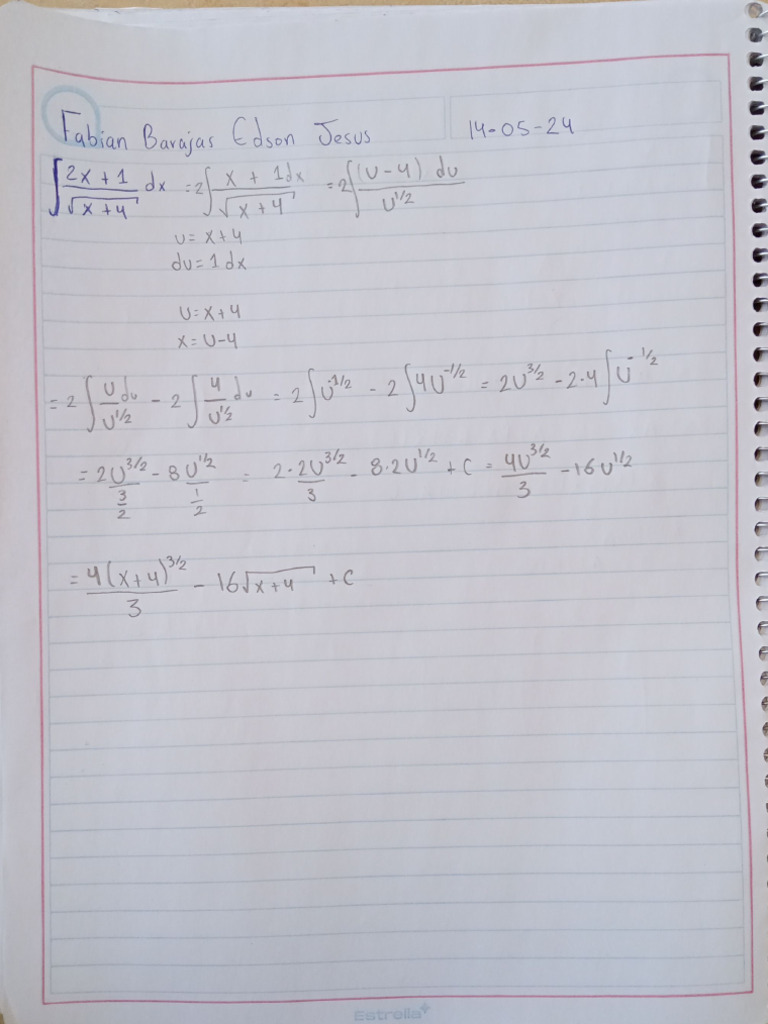 Fabian Barajas Edson Jesus 14-05-24
∫ (2x + 1)/√(x + 4) dx = 2∫ (x + 1dx)/√(x + 4) = 2∫ ((u - 4) du)/u^(1/2)
u = x+4
du = 1 dx
u = x+4
x = u-4
= 2 ∫ u/u^(1/2) du - 2 ∫ 4/u^(1/2) du = 2 ∫ u^(-1/2) - 2 ∫ 4u^(-1/2) = 2u^(3/2) - 2·4 ∫ u^(-1/2)
= 2u^(3/2)/(3/2) - 8u^(1/2)/(1/2) = 2·2u^(3/2)/3 - 8·2u^(1/2) + c = 4u^(3/2)/3 - 16u^(1/2)
= 4(x+4)^(3/2)/3 - 16√(x+4) + c
Estrella